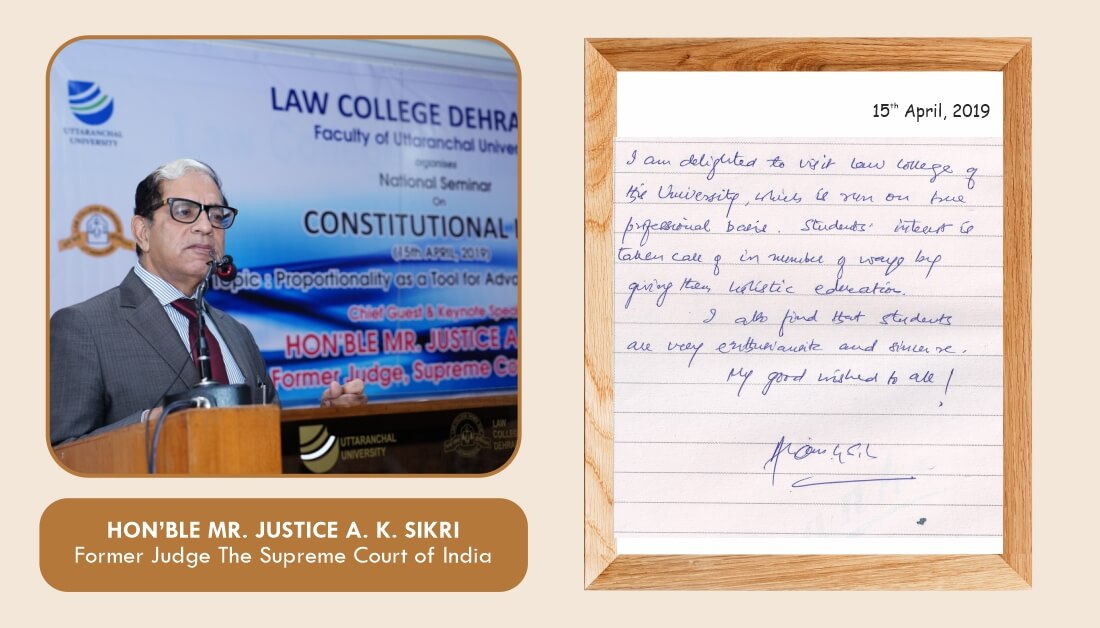 UTTARANCHAL
UNIVERSITY
LAW COLLEGE DEHRA
Faculty of Uttaranchal Univer
organises
National Seminar
On
CONSTITUTIONAL
(15th APRIL, 2019)
Topic : Proportionality as a Tool for Adva
Chief Guest & Keynote Speak
HON'BLE MR. JUSTICE A
Former Judge, Supreme Co
UTTARANCHAL
UNIVERSITY
LAW
COLLEGE
DEHRA
HON'BLE MR. JUSTICE A. K. SIKRI
Former Judge The Supreme Court of India
15th April, 2019
I am delighted to visit Law College of
this University, which is run on true
professional basis. Students' interest is
taken care of in number of ways by
giving them holistic education.
I also find that students
are very enthusiastic and sincere.
My good wished to all!